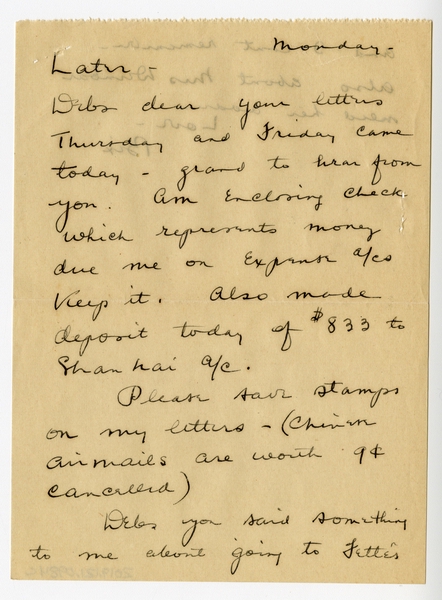 Monday -
Later -
Debs dear your letters
Thursday and Friday came
today - grand to hear from
you. Am Enclosing check
which represents money
due me on Expense a/cs
Keep it. Also made
deposit today of $833 to
Shanhai a/c.
Please save stamps
on my letters - (Chinese
airmails are worth 9¢
cancelled)
Debs you said something
to me about going to Fette's